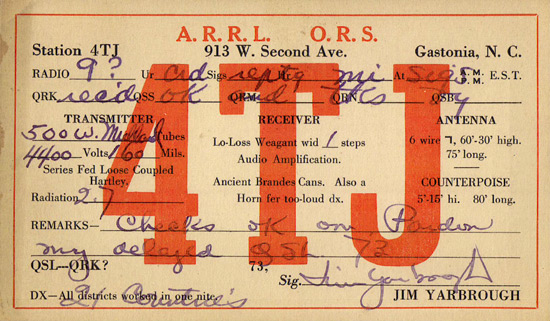 A.R.R.L. O.R.S.
Station 4TJ 913 W. Second Ave. Gastonia, N. C.
4TJ
RADIO 9? Ur crd Sigs reptg mi At sigs A.M. P.M. E.S.T.
QRK rec'd QSS OK QRM nd QRN tks QSB
TRANSMITTER
500 W. Tubes
4400 Volts 160 Mils.
Series Fed Loose Coupled
Hartley.
Radiation 2.7
RECEIVER
Lo-Loss Weagant wid 1 steps
Audio Amplification.
Ancient Brandes Cans. Also a
Horn fer too-loud dx.
ANTENNA
6 wire 7, 60'-30' high.
75' long.
COUNTERPOISE
5'-15' hi. 80' long.
REMARKS— Checks OK om. Pardon
my delayed QSL. 73
QSL—QRK? 73,
Sig. Jim Yarbrough
DX—All districts worked in one nite.
JIM YARBROUGH
Countries